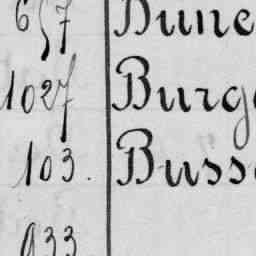 657 Dune
1027 Burg
103. Buss
933